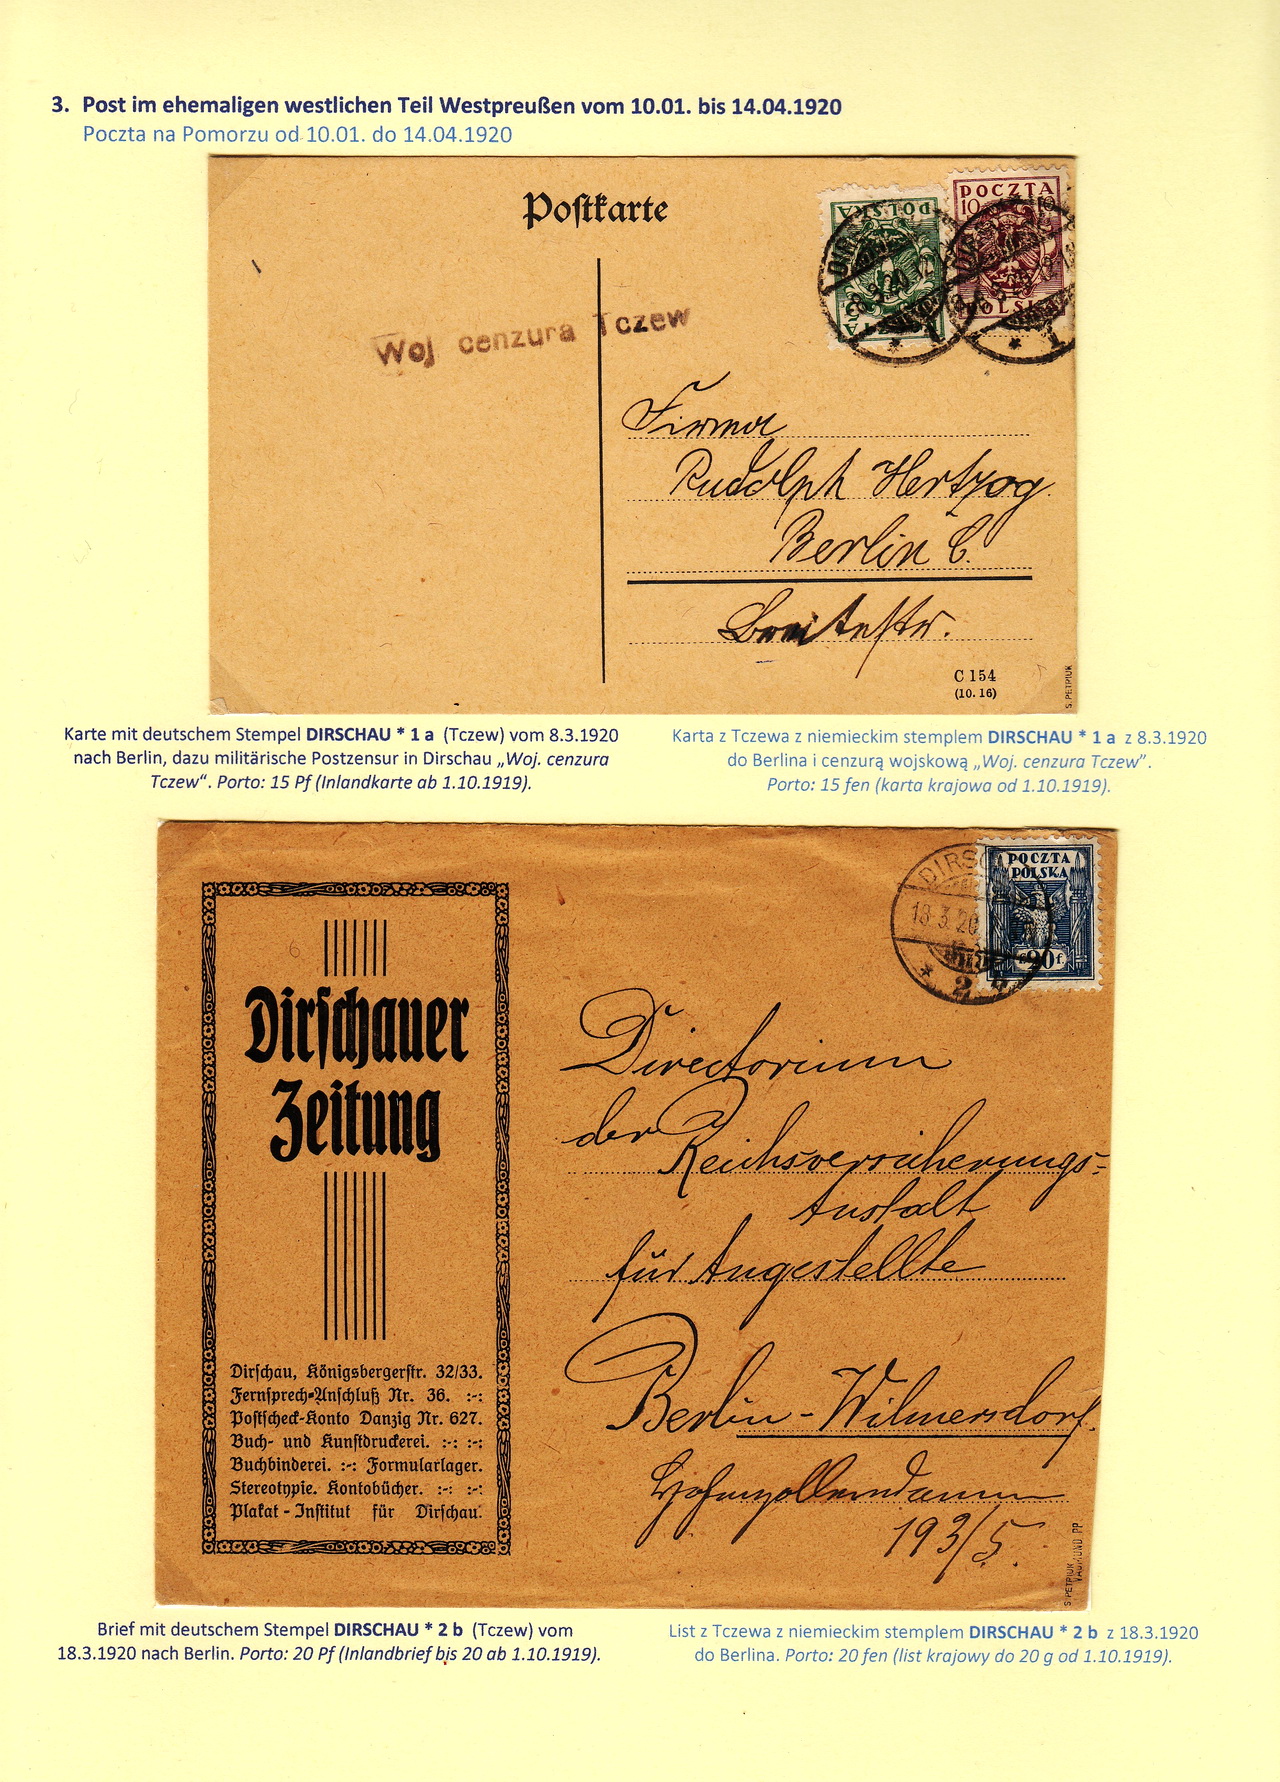 3. Post im ehemaligen westlichen Teil Westpreußen vom 10.01. bis 14.04.1920
Poczta na Pomorzu od 10.01. do 14.04.1920
Poſtkarte
POLSKA
POCZTA
10
POLSKA
8.3.20
*
1
*
1
Woj cenzura Tczew
Firma
Rudolph Hertzog
Berlin C.
Breitestr.
C 154
(10. 16)
S.PETRIUK
Karte mit deutschem Stempel DIRSCHAU * 1 a (Tczew) vom 8.3.1920
nach Berlin, dazu militärische Postzensur in Dirschau „Woj. cenzura
Tczew“. Porto: 15 Pf (Inlandkarte ab 1.10.1919).
Karta z Tczewa z niemieckim stemplem DIRSCHAU * 1 a z 8.3.1920
do Berlina i cenzurą wojskową „Woj. cenzura Tczew”.
Porto: 15 fen (karta krajowa od 1.10.1919).
DIRSC
18.3.20
*
2
POCZTA
POLSKA
20 f.
Dirſchauer
Zeitung
Dirſchau, Königsbergerſtr. 32/33.
Fernſprech-Anſchluß Nr. 36. :-:
Poſtſcheck-Konto Danzig Nr. 627.
Buch- und Kunſtdruckerei. :-: :-:
Buchbinderei. :-: Formularlager.
Stereotypie. Kontobücher. :-: :-:
Plakat - Inſtitut für Dirſchau.
Directorium
der Reichsversicherungs-
Anstalt
für Angestellte
Berlin-Wilmersdorf.
Hohenzollerndamm
193/5.
S.PETRIUK
Brief mit deutschem Stempel DIRSCHAU * 2 b (Tczew) vom
18.3.1920 nach Berlin. Porto: 20 Pf (Inlandbrief bis 20 ab 1.10.1919).
List z Tczewa z niemieckim stemplem DIRSCHAU * 2 b z 18.3.1920
do Berlina. Porto: 20 fen (list krajowy do 20 g od 1.10.1919).